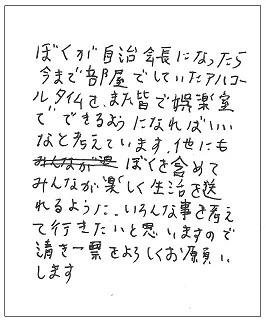 ぼくが自治会長になったら
今まで部屋でしていたアルコー
ルタイムを、また皆で娯楽室
で できるようになればいい
なと考えています。他にも
みんなが ぼくを含めて
みんなが楽しく生活を送
れるように、いろんな事を考え
て行きたいと思いますので
清き一票をよろしくお願い
します